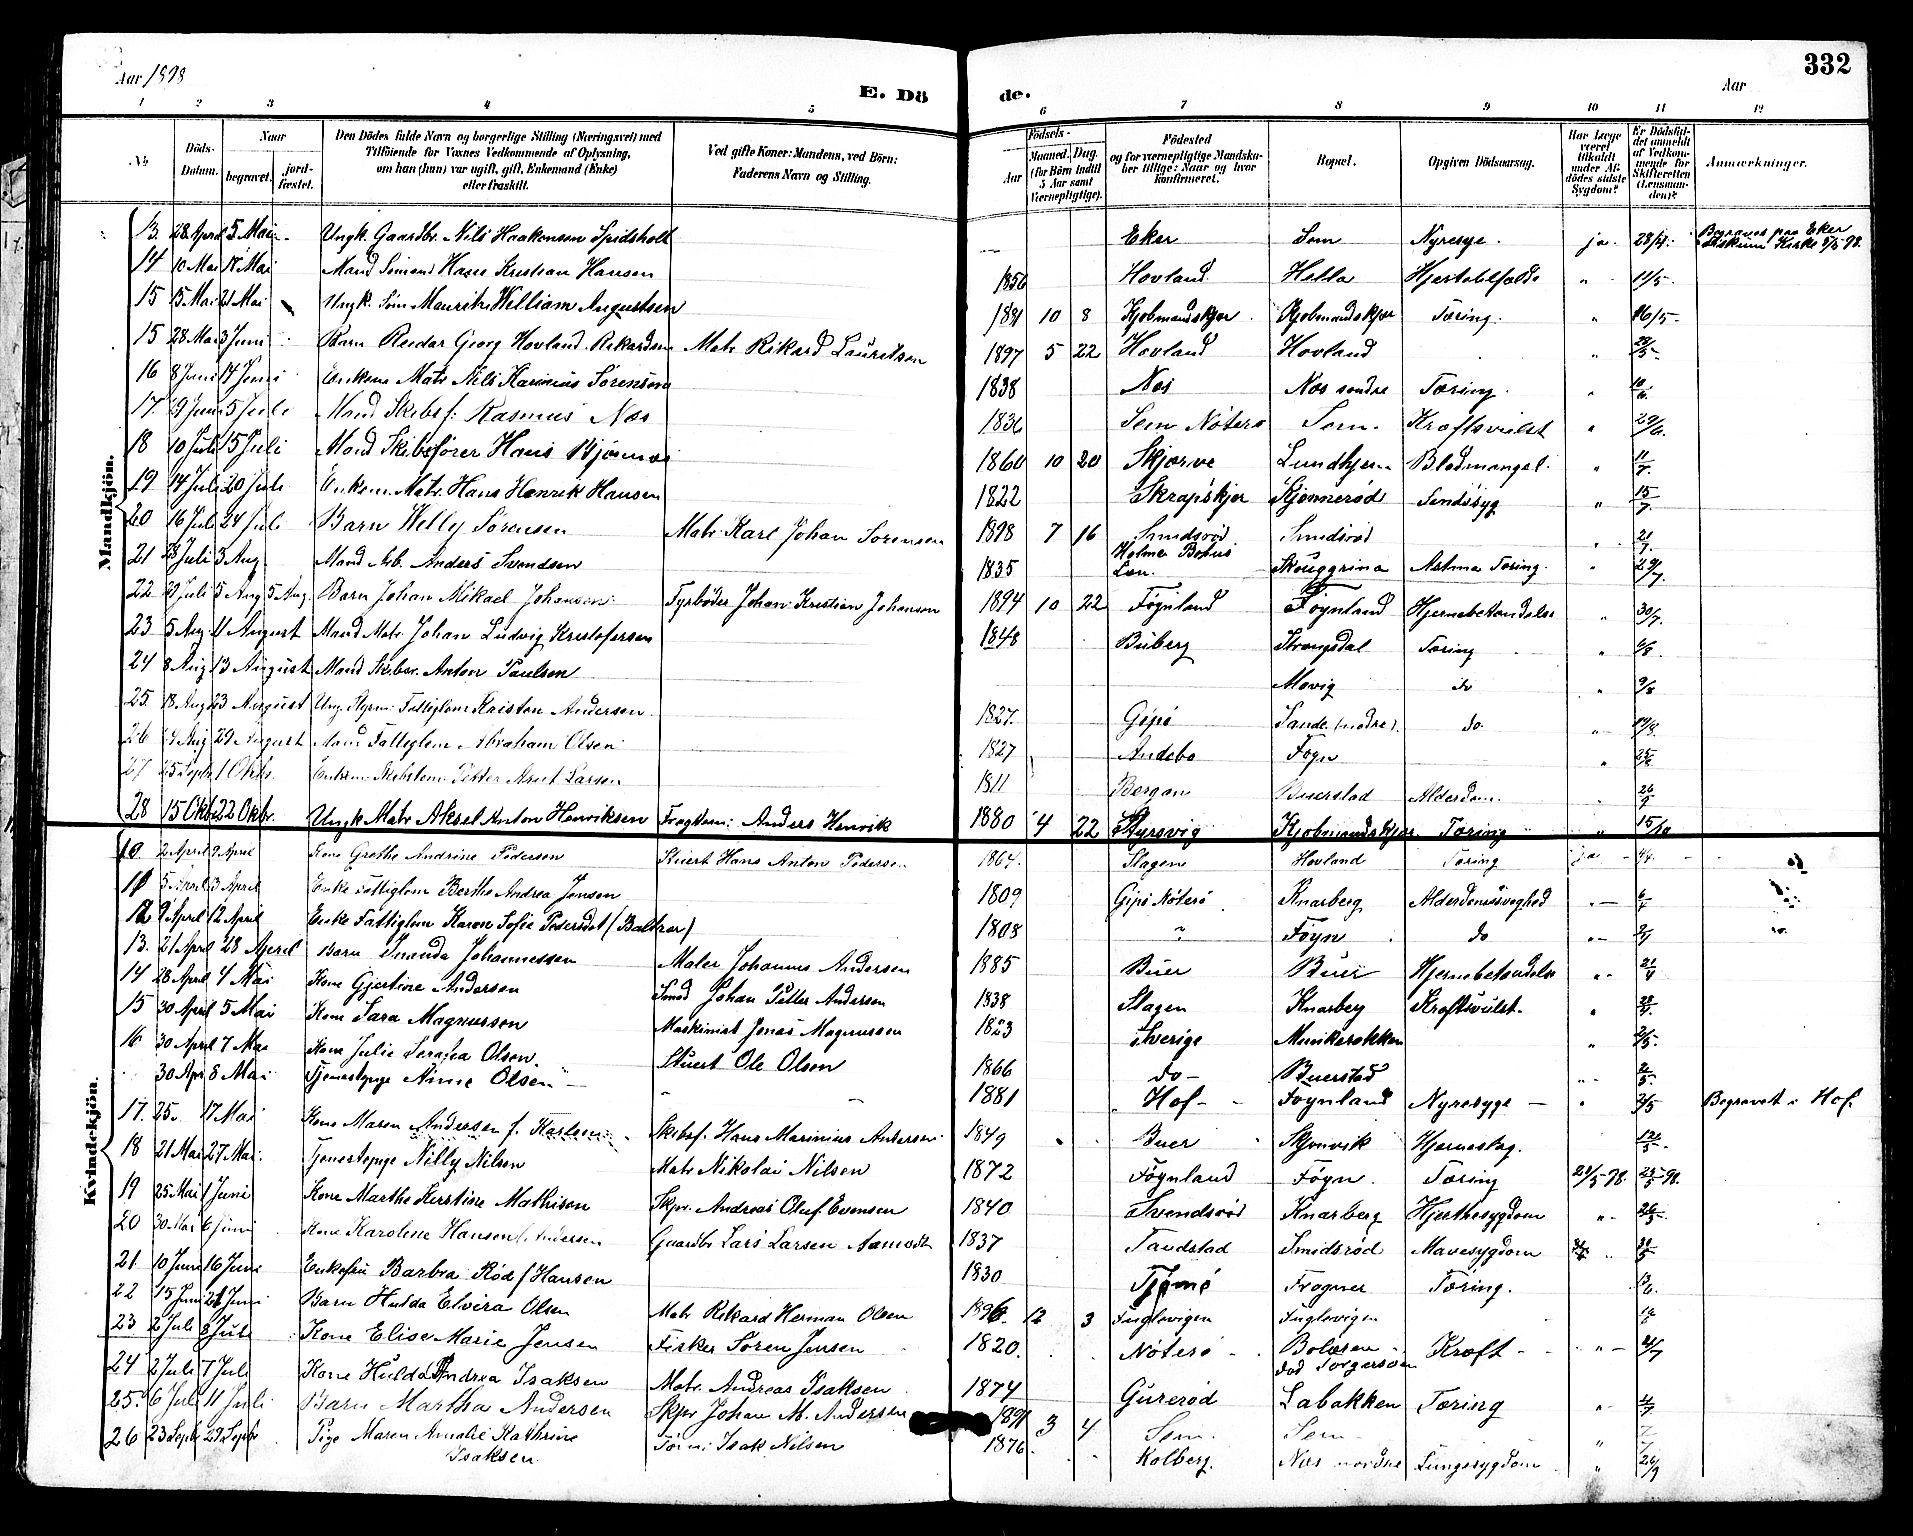 332
Aar 1898
Aar
E. Dö
de.
1 2 3 4 5 6 7 8 9 10 11 12
No
Döds-Datum.
Naar
begravet.
jord-fæstet.
Den Dödes fulde Navn og borgerlige Stilling (Næringsvei) med
Tilföiende for Voxnes Vedkommende af Oplysning,
om han (hun) var ugift, gift, Enkemand (Enke)
eller fraskilt.
Ved gifte Koner: Mandens, ved Börn:
Faderens Navn og Stilling.
Födsels-
Aar
Maaned. Dag.
(for Börn indtil 5 Aar samt Værnepligtige).
Födested
og for værnepligtige Mandska-
ber tillige: Naar og hvor
konfirmeret.
Bopæl.
Opgiven Dödsaarsag.
Har Læge været tilkaldt under Af-dödes sidste Sygdom?
Er Dödsfal-det anmeldt af Vedkom-mende for Skifteretten (Lensman-den)?
Anmærkninger.
Mandkjön.
13. 28 April 5 Mai Ungk. Gaardbr. Nils Haakensen Spidsholt Eker Sem Nyresye. ja 28/4. Begravet paa Eker Kirke 5/5 98.
14 10 Mai 18 Mai Mand Sömand Hans Kristian Hansen 1856 Hovland Hella 11/5.
15 15 Mai 21 Mai Ungk. Söm. Mauritz William Augustsen 1881 10 8 Kjobmandskjær Kjobmandskjær Tæring. " 16/5.
15 28 Mai 3 Juni Barn Reidar Georg Hovland Rikardsen Matr Rikard Lauritsen 1897 5 22 Hovland Hovland "
16 8 Juni 14 Juni Enkem Matr. Nils Karinius Sörensen 1838 Nes Næs söndre Tæring. " 10/6
17. 29 Juni 5 Juli Mand Skibsf: Rasmus Næs 1836 Sem Nöterö Sem. Kræftsvulst " 29/6.
18 10 Juli 15 Juli Mand Skibsförer Hans Bjönnes 1860 10 20 Skjærve Blodmangel. " 11/7.
19 14 Juli 20 Juli Enkem. Matr. Hans Henrik Hansen 1822 Skrapskjer Kjønnerød Sindssyg " 15/7.
20 16 Juli 24 Juli Barn Welly Sörensen Matr Karl Johan Sorensen 1898 7 16 Smidsröd Smidsröd " 21/7.
21 28 Juli 3 Aug. Mand Arb. Anders Svendsen 1835 Holmer Bohus Len. Skouggrina Astma Tæring. " 29/7.
22 29 Juli 5 Aug 5 Aug. Barn Johan Mikael Johansen Fyrböder Johan Kristian Johansen 1894 10 22 Föynland Föynland Hjernebetændelse " 30/7.
23 5 Aug 11 August Mand Matr. Johan Ludvig Kristofersen 1848 Buberg Strengsdal Tæring " 6/8.
24 8 Aug 13 August Mand Anton Paulsen Movig do " 9/8
25. 18 Aug 23 August Ung. Styrm. Fattiglem Kristen Andersen 1827. Gipö Sande (nødre). do. "
26 24 Aug 29 August Mand Fattiglem Abraham Olsen 1827 Andebo Fogn "
27 25 Septr 1 Oktb. Enkem. Petter Arnt Larsen 1811 Bergan Buerstad Alderdom. " 26/9
28 15 Oktbr 22 Oktbr. Ungk Matr Aksel Anton Henriksen Fragtem: Anders Henrik 1880 4 22 Styrsvig Kjobmandskjær Tæring " 15/10
Kvindekjön.
10. 2 April 9 April Kone Grethe Andrine Pedersen Stuert Hans Anton Pedersen 1864. Slagen Hovland Tæring ja 4/4.
11 5 April 13 April Enke Fattiglem Berthe Andrea Jensen 1809 Gipö Nöterö Knarberg Alderdomssvaghed " 6/4
12 9 April 12 April Enke Fattiglem Karen Sofie Pedersdat (Baltzar) 1808 " Föyn do "
13. 21 April 28 Aperel Barn Inanda Johannessen Maler Johannes Andersen 1885 Buer Buer Hjernebetændelse " 21/4
14 28 April 4 Mai Kone Gjertine Andersen Smed Johan Petter Andersen 1838 Slagen Knarberg Kræftsvulst. "
15 30 April 5 Mai Kone Sara Magnusson Maskinist Jonas Magnussen 1823 Sverige Munkerekken " 2/5.
16 30 April 7 Mai Kone Julie Serafia Olsen. Stuert Ole Olsen 1866 do Buerstad " 2/5.
30 Apr 8 Mai Tjenestepige Anne Olsen 1881 Hof Föynland Nyresyge " 2/5 Begravet i Hof.
17. 25. 17 Mai Kone Maren Andersen f. Karlsen Skibsf. Hans Marinius Andersen 1849 Buer Skjerrvik Hjerneslag.
18 21 Mai 27 Mai. Tjenestepige Nilly Nilsen Matr Nikolai Nilsen 1872 Föynland Föyn. Tæring 21/5 98. 23/5 98.
19 25 Mai 1 Juni Kone Marthe Kirstine Mathisen Skpr. Andreas Oluf Evensen 1840 Svendsröd Knarberg Hjerthesygdom " 26/5.
20 30 Mai 6 Juni Kone Karoline Hansen f. Andersen Gaardbr Lars Larsen Aamodt 1837 Tandstad Smidsröd Mavesygdom " 30/5
21 10 Juni 16 Juni Enkefru Barbra Röd f Hansen 1830 Tjömö Frogner Tæring. 13/6.
22 15 Juni 21 Juni Barn Hulda Elvira Olsen Matr Rikard Herman Olsen 1896. 12 3 Fuglevigen Fuglevigen
23 2 Juli 8 Juli Kone Elise Marie Jensen Fisker Sören Jensen 1820. Nöterö Bolærne död Torgersöen Kræft " 4/7
24 2 Juli 7 Juli Kone Hulda Andrea Isaksen Matr. Andreas Isaksen 1874 Gureröd Labakken Tæring "
25. 6 Juli 11 Juli Barn Martha Andersen Skpr Johan M. Andersen 1891 3 4 Sem. Sem "
26 23 Septr 29 Septbr Pige Maren Amalie Kathrine Isaksen. Isak Nilsen 1876 Kolberg. Næs nordre Lungesygdom " 26/9